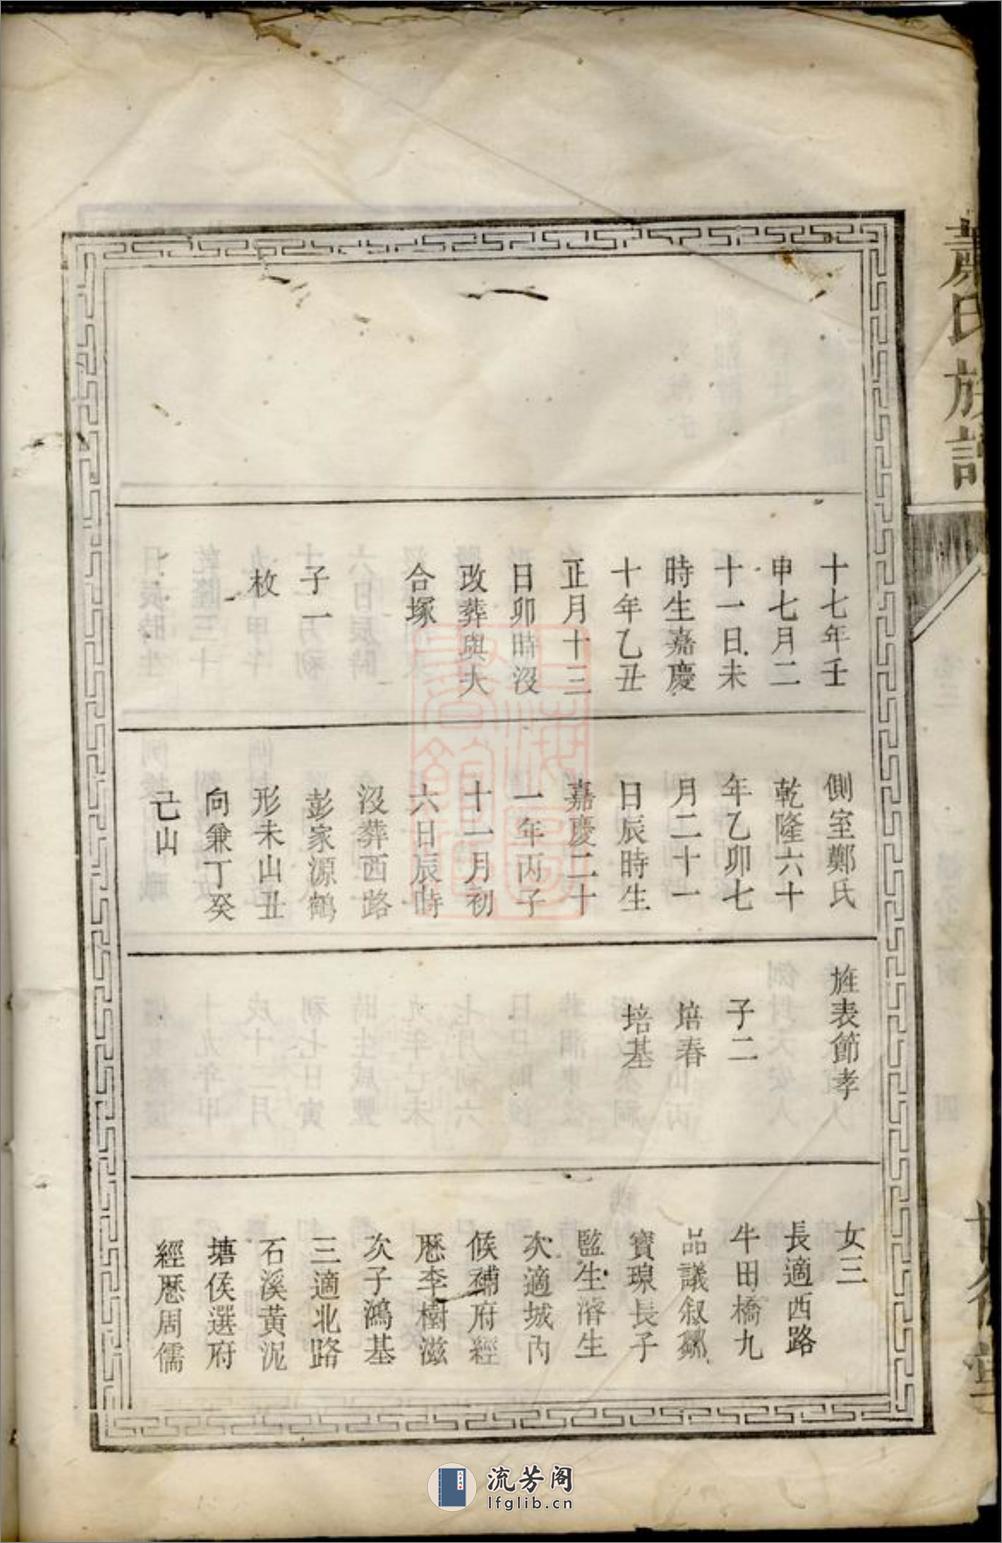 蕭氏族譜
十七年壬
申七月二
十一日未
時生嘉慶
十年乙丑
正月十三
日卯時沒
改葬與夫
合塚
子一
枚
側室鄭氏
乾隆六十
年乙卯七
月二十一
日辰時生
嘉慶二十
一年丙子
十一月初
六日辰時
沒葬西路
彭家源鶴
形未山丑
向兼丁癸
己山
旌表節孝
子二
培春
培基
女三
長適西路
牛田橋九
品議叙
寶琅長子
監生濬生
次適城內
候補府經
歷李樹滋
次子鴻基
三適北路
石溪黃泥
塘侯選府
經歷周儒
流芳阁
lfglib.cn